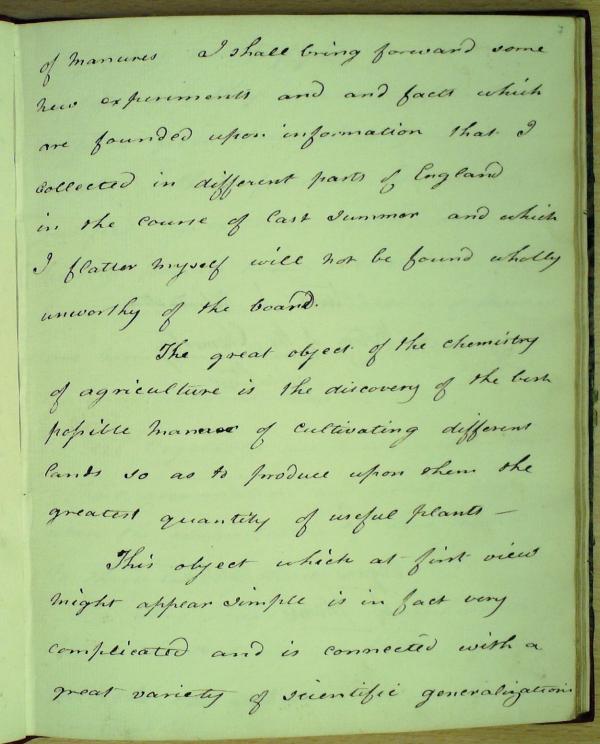 7
of manures I shall bring forward some
new experiments and and facts which
are founded upon information that I
collected in different parts of England
in the course of last summer and which
I flatter myself will not be found wholly
unworthy of the board.
The great object of the chemistry
of agriculture is the discovery of the best
possible manner of cultivating different
lands so as to produce upon them the
greatest quantity of useful plants —
This object which at first view
might appear simple is in fact very
complicated and is connected with a
great variety of scientific generalizations